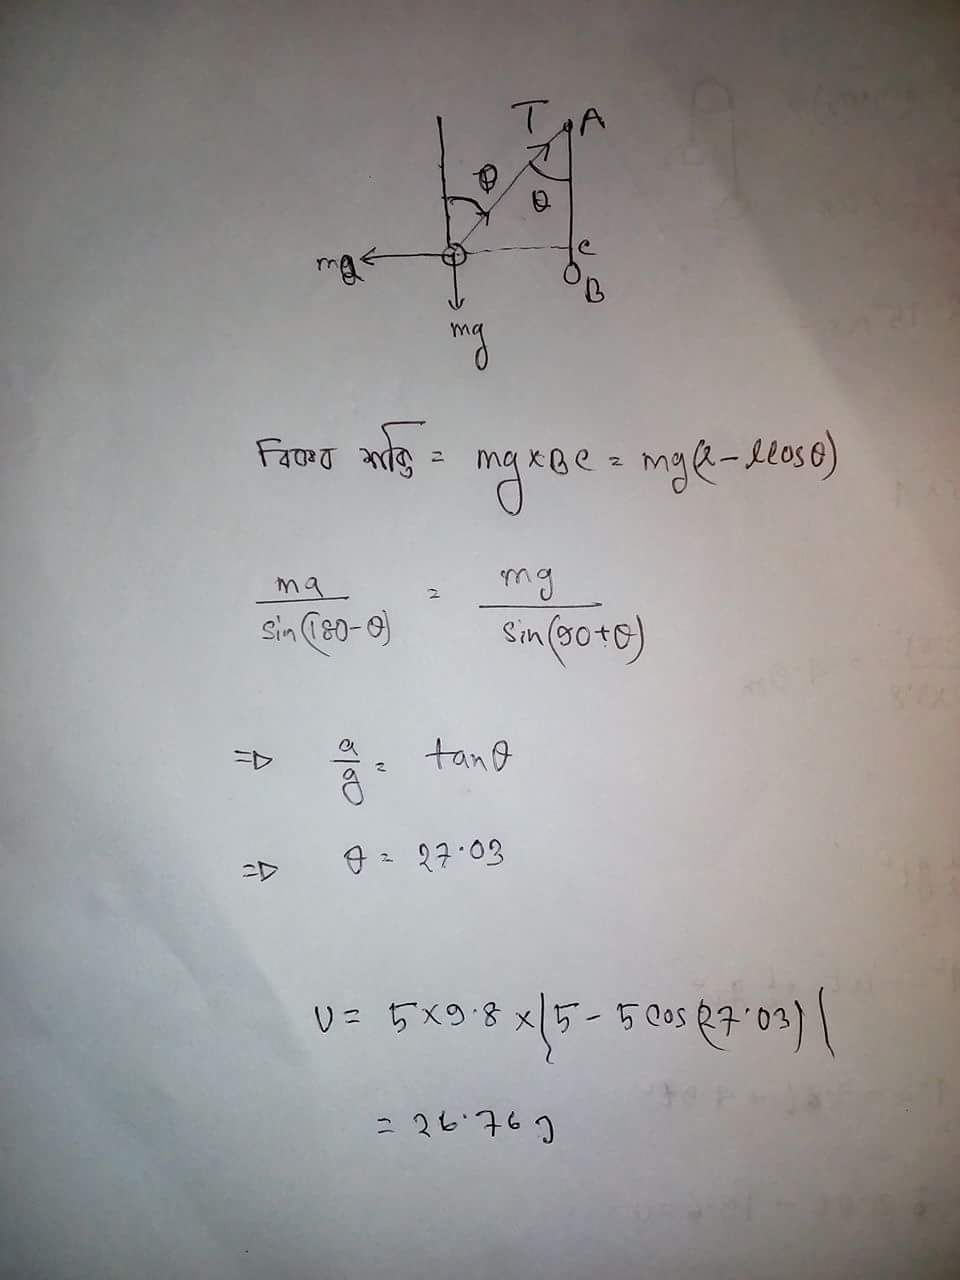 T A
θ
θ
C
ma
B
mg
বিভব শক্তি = mg × BC = mg(l - lcosθ)
ma / sin(180-θ) = mg / sin(90+θ)
⇒ a/g = tanθ
⇒ θ = 27.03
U = 5×9.8×(5 - 5cos(27.03))
= 26.76 J